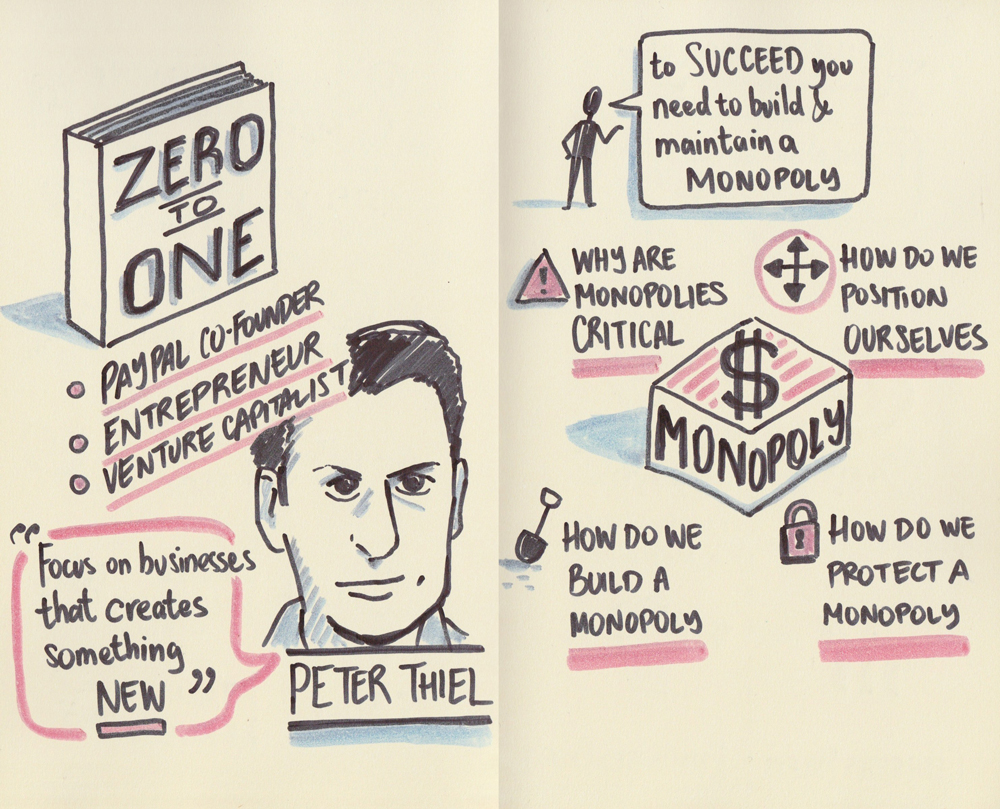 ZERO
TO
ONE
PAYPAL CO-FOUNDER
ENTREPRENEUR
VENTURE CAPITALIST
“Focus on businesses
that creates
something
NEW”
PETER THIEL
to SUCCEED you
need to build &
maintain a
MONOPOLY
WHY ARE
MONOPOLIES
CRITICAL
HOW DO WE
POSITION
OURSELVES
$
MONOPOLY
HOW DO WE
BUILD A
MONOPOLY
HOW DO WE
PROTECT A
MONOPOLY